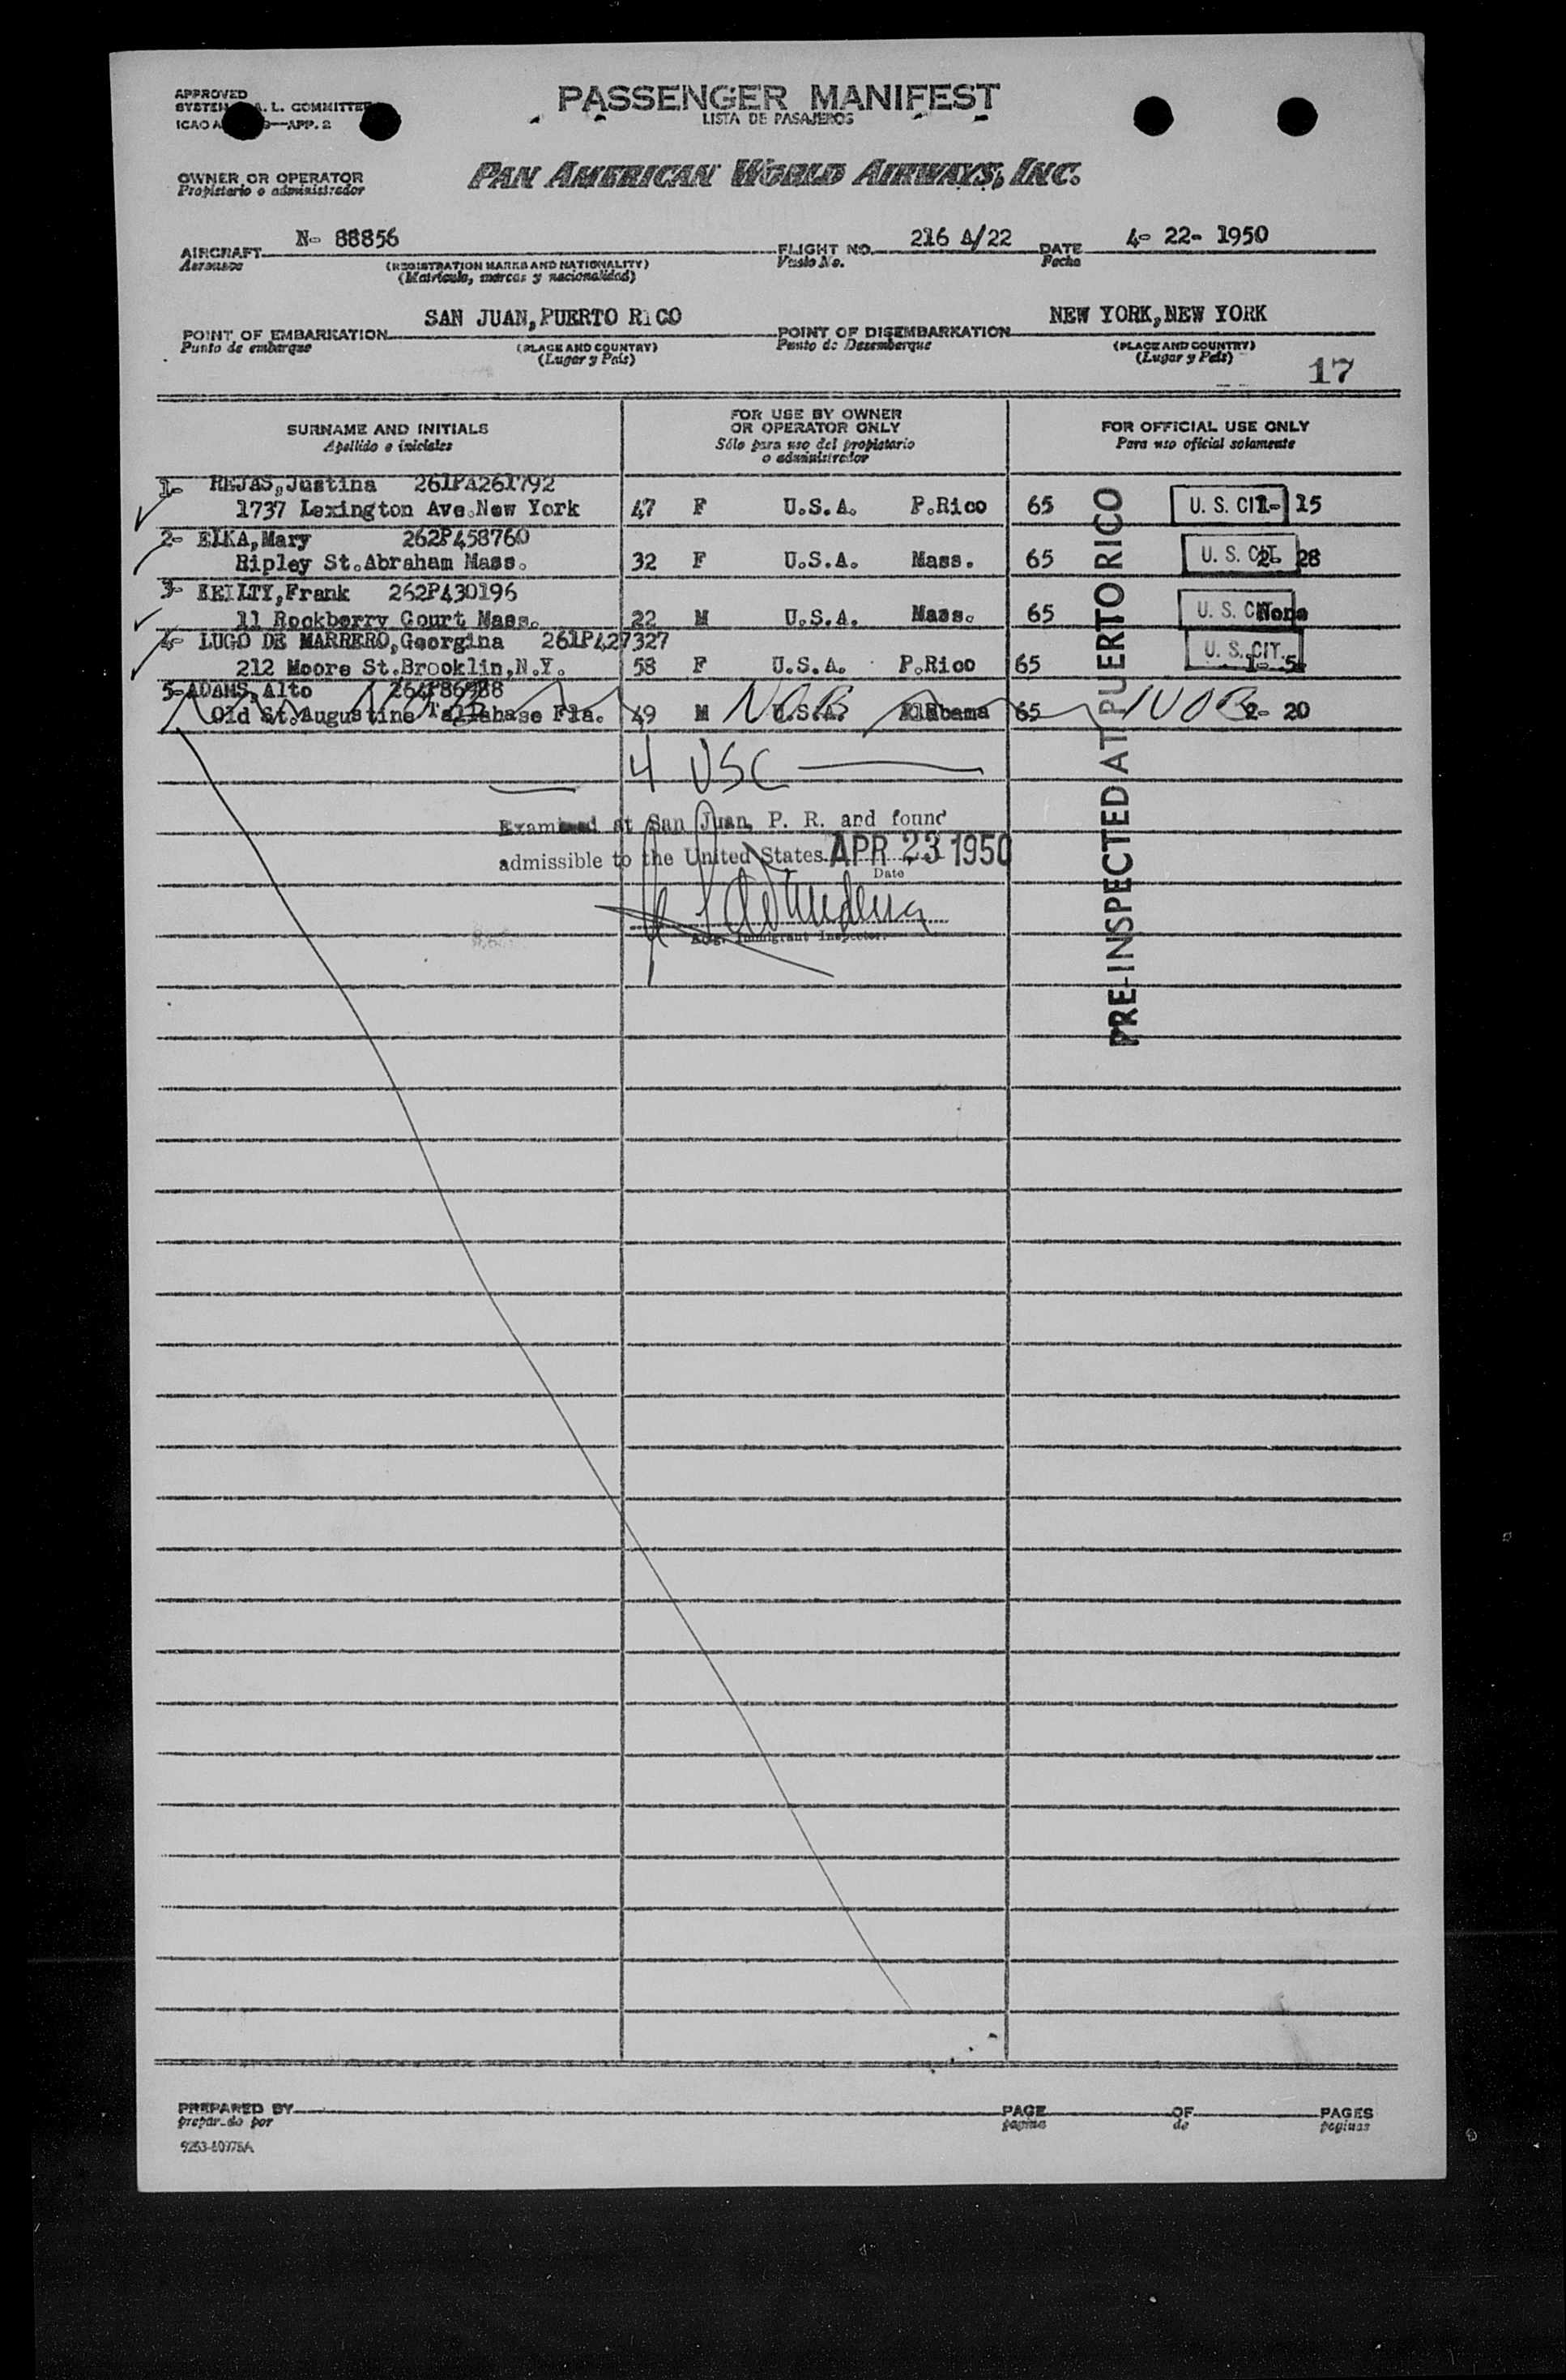 APPROVED
SYSTEM A. L. COMMITTEE
ICAO A 9—APP. 2
PASSENGER MANIFEST
LISTA DE PASAJEROS
OWNER OR OPERATOR
Propietario o administrador
PAN AMERICAN WORLD AIRWAYS, INC.
AIRCRAFT N- 88856 FLIGHT NO. 216 A/22 DATE 4- 22- 1950
Aeronave (REGISTRATION MARKS AND NATIONALITY) Vuelo No. Fecha
(Matrícula, marcas y nacionalidad)
POINT OF EMBARKATION SAN JUAN, PUERTO RICO POINT OF DISEMBARKATION NEW YORK, NEW YORK
Punto de embarque (PLACE AND COUNTRY) Punto de Desembarque (PLACE AND COUNTRY)
(Lugar y País) (Lugar y País)
17
SURNAME AND INITIALS
Apellido e iniciales
FOR USE BY OWNER
OR OPERATOR ONLY
Sólo para uso del propietario
o administrador
FOR OFFICIAL USE ONLY
Para uso oficial solamente
1- REJAS, Justina 261PA261792
1737 Lexington Ave. New York 47 F U.S.A. P.Rico 65 U. S. CIT. 1- 15
2- EIKA, Mary 262P458760
Ripley St. Abraham Mass. 32 F U.S.A. Mass. 65 U. S. CIT. 2- 28
3- KEILTY, Frank 262P430196
11 Rockberry Court Mass. 22 M U.S.A. Mass. 65 U. S. CIT. None
4- LUGO DE MARRERO, Georgina 261P427327
212 Moore St. Brooklin, N.Y. 58 F U.S.A. P.Rico 65 U. S. CIT. 1- 5
5- ADAMS, Alto 264P86988
Old St. Augustine Tallahase Fla. 49 M U.S.A. Alabama 65 2- 20
NOB NOB NOB
4 USC
Examined at San Juan, P. R. and found
admissible to the United States APR 23 1950
Date
Actg. Immigrant Inspector.
PRE-INSPECTED AT PUERTO RICO
PREPARED BY PAGE OF PAGES
preparado por pagina de paginas